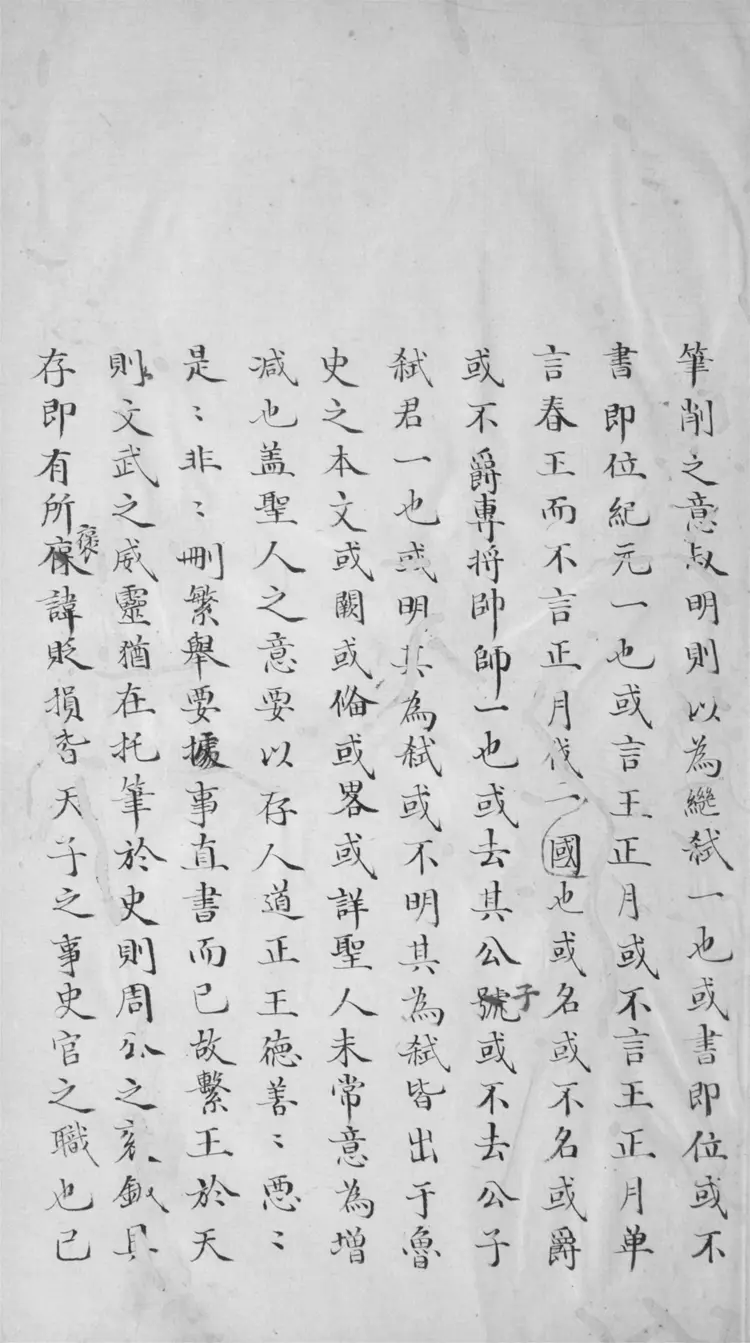 筆削之意叔明則以為繼弑一也或書即位或不
書即位紀元一也或言王正月或不言王正月单
言春王而不言正月伐一國也或名或不名或爵
或不爵專将帥師一也或去其公子或不去公子
弑君一也或明其為弑或不明其為弑皆出于魯
史之本文或闕或俻或畧或詳聖人未常意為增
减也盖聖人之意要以存人道正王徳善〻惡〻
是〻非〻刪繁舉要據事直書而已故繫王於天
則文武之威靈猶在托筆於史則周公之衮鉞具
存即有所褒諱貶損皆天子之事史官之職也已